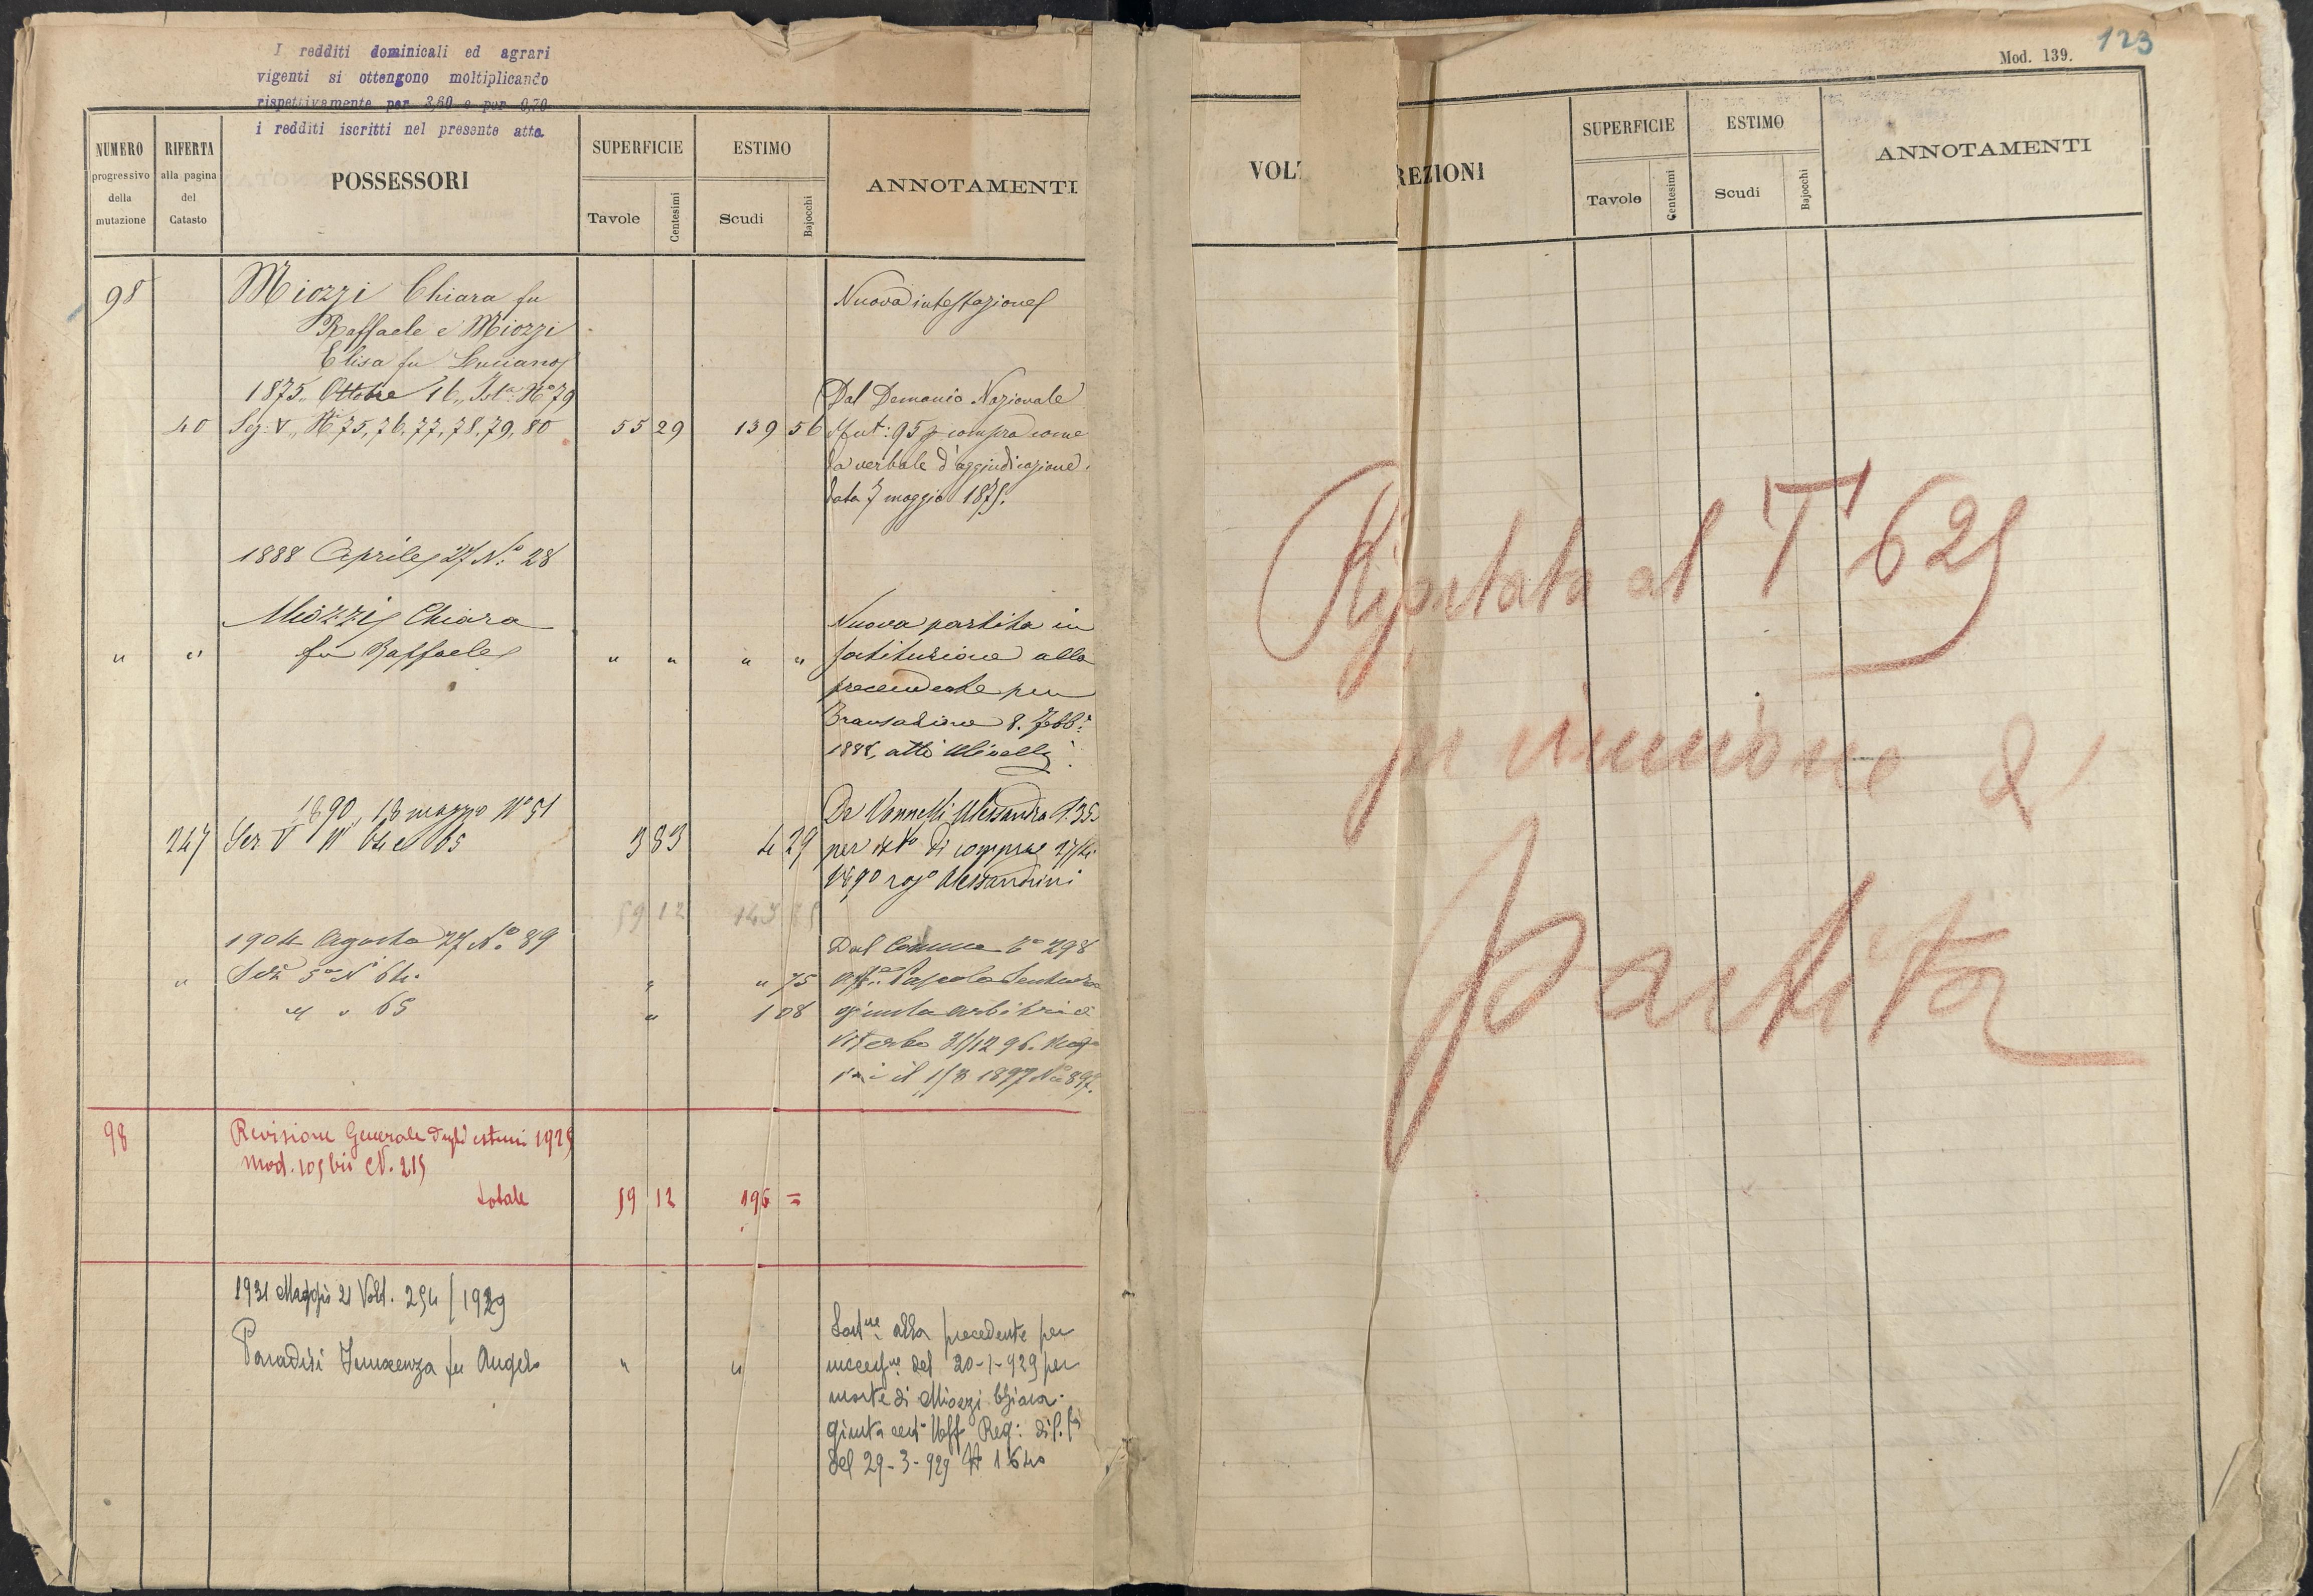 I redditi dominicali ed agrari
vigenti si ottengono moltiplicando
rispettivamente per 3,60 e per 0,70
i redditi iscritti nel presente atto.
NUMERO
progressivo
della
mutazione
RIFERTA
alla pagina
del
Catasto
POSSESSORI
SUPERFICIE
Tavole
Centesimi
ESTIMO
Scudi
Bajocchi
ANNOTAMENTI
98 Miozzi Chiara fu Nuova intestazione
Raffaele e Miozzi
Elisa fu Luciano
1875 Ottobre 16 Ista N° 79 Dal Demanio Nazionale
40 Sez: V, N. 75, 76, 77, 78, 79, 80 55 29 139 56 Mut: 95 compra come
da verbale d'aggiudicazione
data 7 maggio 1875.
1888 Aprile 27 N.° 28
Miozzi Chiara Nuova partita in
" " fu Raffaele " " " " sostituzione alla
precedente per
8. Febb:
1888, atti
1890, 18 marzo N° 51 Da Vannelli Alessandra
247 Sez V N 64 e 65 3 83 4 29 per di compra
1890 rog° Alessandrini
59 12 143
1904 Agosto 27 N.° 89 Dal Comune 298
" Sez 5a N° 64. " " 75
" " 65 " 1 08 giusta
Viterbo 31/12 96.
il 1/3 1897 N° 897.
98 Revisione Generale degli estimi 1925
mod. 105 bis N. 215
totale 59 12 196 =
1931 Maggio 21 Volt. 254/1929
Paradisi Innocenza fu Angelo " " Sost.ne alla precedente per
success.ne del 20-1-929 per
morte di Miozzi Chiara.
giusta Uff° Reg:
del 29-3-929 N°
123
Mod. 139.
VOL
REZIONI
SUPERFICIE
Tavole
Centesimi
ESTIMO
Scudi
Bajocchi
ANNOTAMENTI
Riportata al T 625
per riunione di
partita